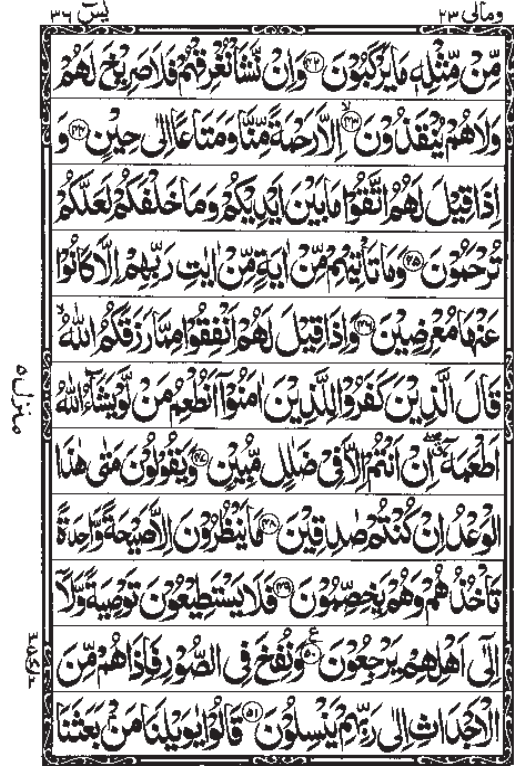 ومالی ۲۳
یٰسٓ ۳۶
مِّنْ مِّثْلِهٖ مَا یَرْكَبُوْنَ ﴿۴۲﴾ وَاِنْ نَّشَاْ نُغْرِقْهُمْ فَلَا صَرِیْخَ لَهُمْ
وَلَا هُمْ یُنْقَذُوْنَ ﴿۴۳﴾ۙ اِلَّا رَحْمَةً مِّنَّا وَمَتَاعًا اِلٰی حِیْنٍ ﴿۴۴﴾ وَ
اِذَا قِیْلَ لَهُمُ اتَّقُوْا مَا بَیْنَ اَیْدِیْكُمْ وَمَا خَلْفَكُمْ لَعَلَّكُمْ
تُرْحَمُوْنَ ﴿۴۵﴾ وَمَا تَاْتِیْهِمْ مِّنْ اٰیَةٍ مِّنْ اٰیٰتِ رَبِّهِمْ اِلَّا كَانُوْا
عَنْهَا مُعْرِضِیْنَ ﴿۴۶﴾ وَاِذَا قِیْلَ لَهُمْ اَنْفِقُوْا مِمَّا رَزَقَكُمُ اللّٰهُ ۙ
قَالَ الَّذِیْنَ كَفَرُوْا لِلَّذِیْنَ اٰمَنُوْۤا اَنُطْعِمُ مَنْ لَّوْ یَشَآءُ اللّٰهُ
اَطْعَمَهٗۤ ۖۗ اِنْ اَنْتُمْ اِلَّا فِیْ ضَلٰلٍ مُّبِیْنٍ ﴿۴۷﴾ وَیَقُوْلُوْنَ مَتٰی هٰذَا
الْوَعْدُ اِنْ كُنْتُمْ صٰدِقِیْنَ ﴿۴۸﴾ مَا یَنْظُرُوْنَ اِلَّا صَیْحَةً وَّاحِدَةً
تَاْخُذُهُمْ وَهُمْ یَخِصِّمُوْنَ ﴿۴۹﴾ فَلَا یَسْتَطِیْعُوْنَ تَوْصِیَةً وَّلَاۤ
اِلٰۤی اَهْلِهِمْ یَرْجِعُوْنَ ﴿۵۰﴾ۧ وَنُفِخَ فِی الصُّوْرِ فَاِذَا هُمْ مِّنَ
الْاَجْدَاثِ اِلٰی رَبِّهِمْ یَنْسِلُوْنَ ﴿۵۱﴾ قَالُوْا یٰوَیْلَنَا مَنْۢ بَعَثَنَا
منزل ۵